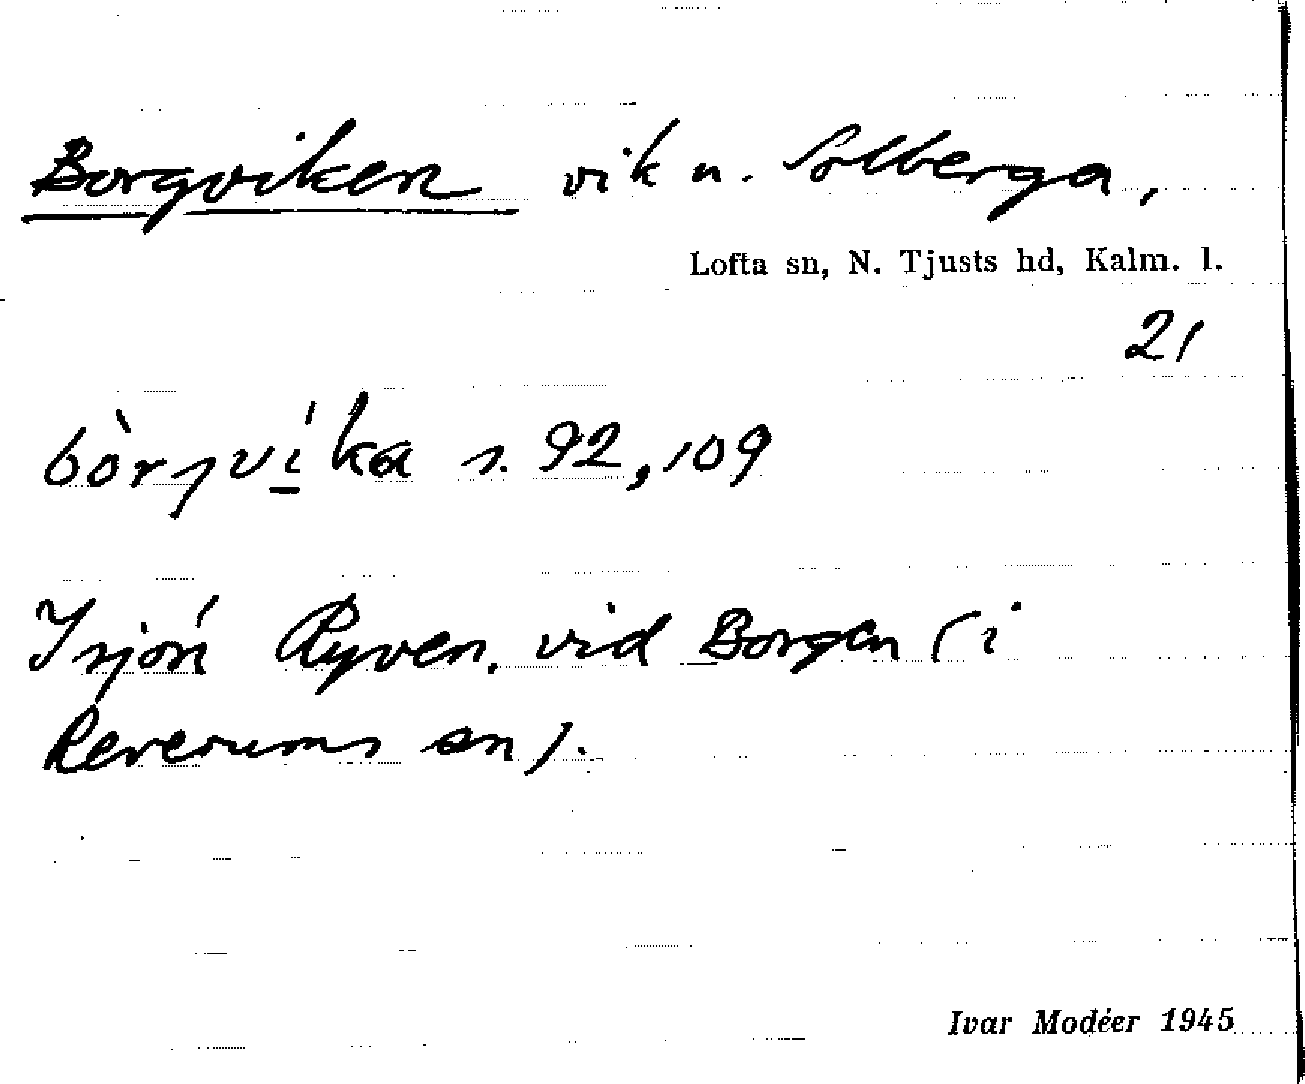 Borgviken vik u. Solberga,
Lofta sn, N. Tjusts hd, Kalm. l.
21
bòrjvíka s. 92, 109
I sjön Ryven, vid Borgen (i
Reverums sn).
Ivar Modéer 1945